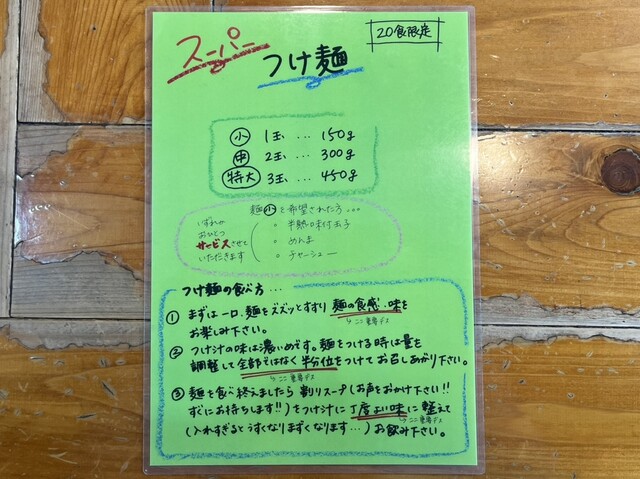 スーパー
20食限定
つけ麺
小 1玉 … 150g
中 2玉 … 300g
特大 3玉 … 450g
麺小を希望された方…
いずれか
おひとつ
サービスさせて
いただきます
。半熟味付玉子
。めんま
。チャーシュー
つけ麺の食べ方…
① まずは一口、麺をズズッとすすり 麺の食感、味を
↳ここ重要デス
お楽しみ下さい。
② つけ汁の味は濃いめです。麺をつける時は量を
調整して全部ではなく半分位をつけてお召しあがり下さい。
↳ここ重要デス
③ 麺を食べ終えましたら 割りスープ(お声をおかけ下さい!!
すぐにお持ちします!!)をつけ汁に丁度よい味に整えて
↳ここ重要デス
(入れすぎるとうすくなりまずくなります…)お飲み下さい。